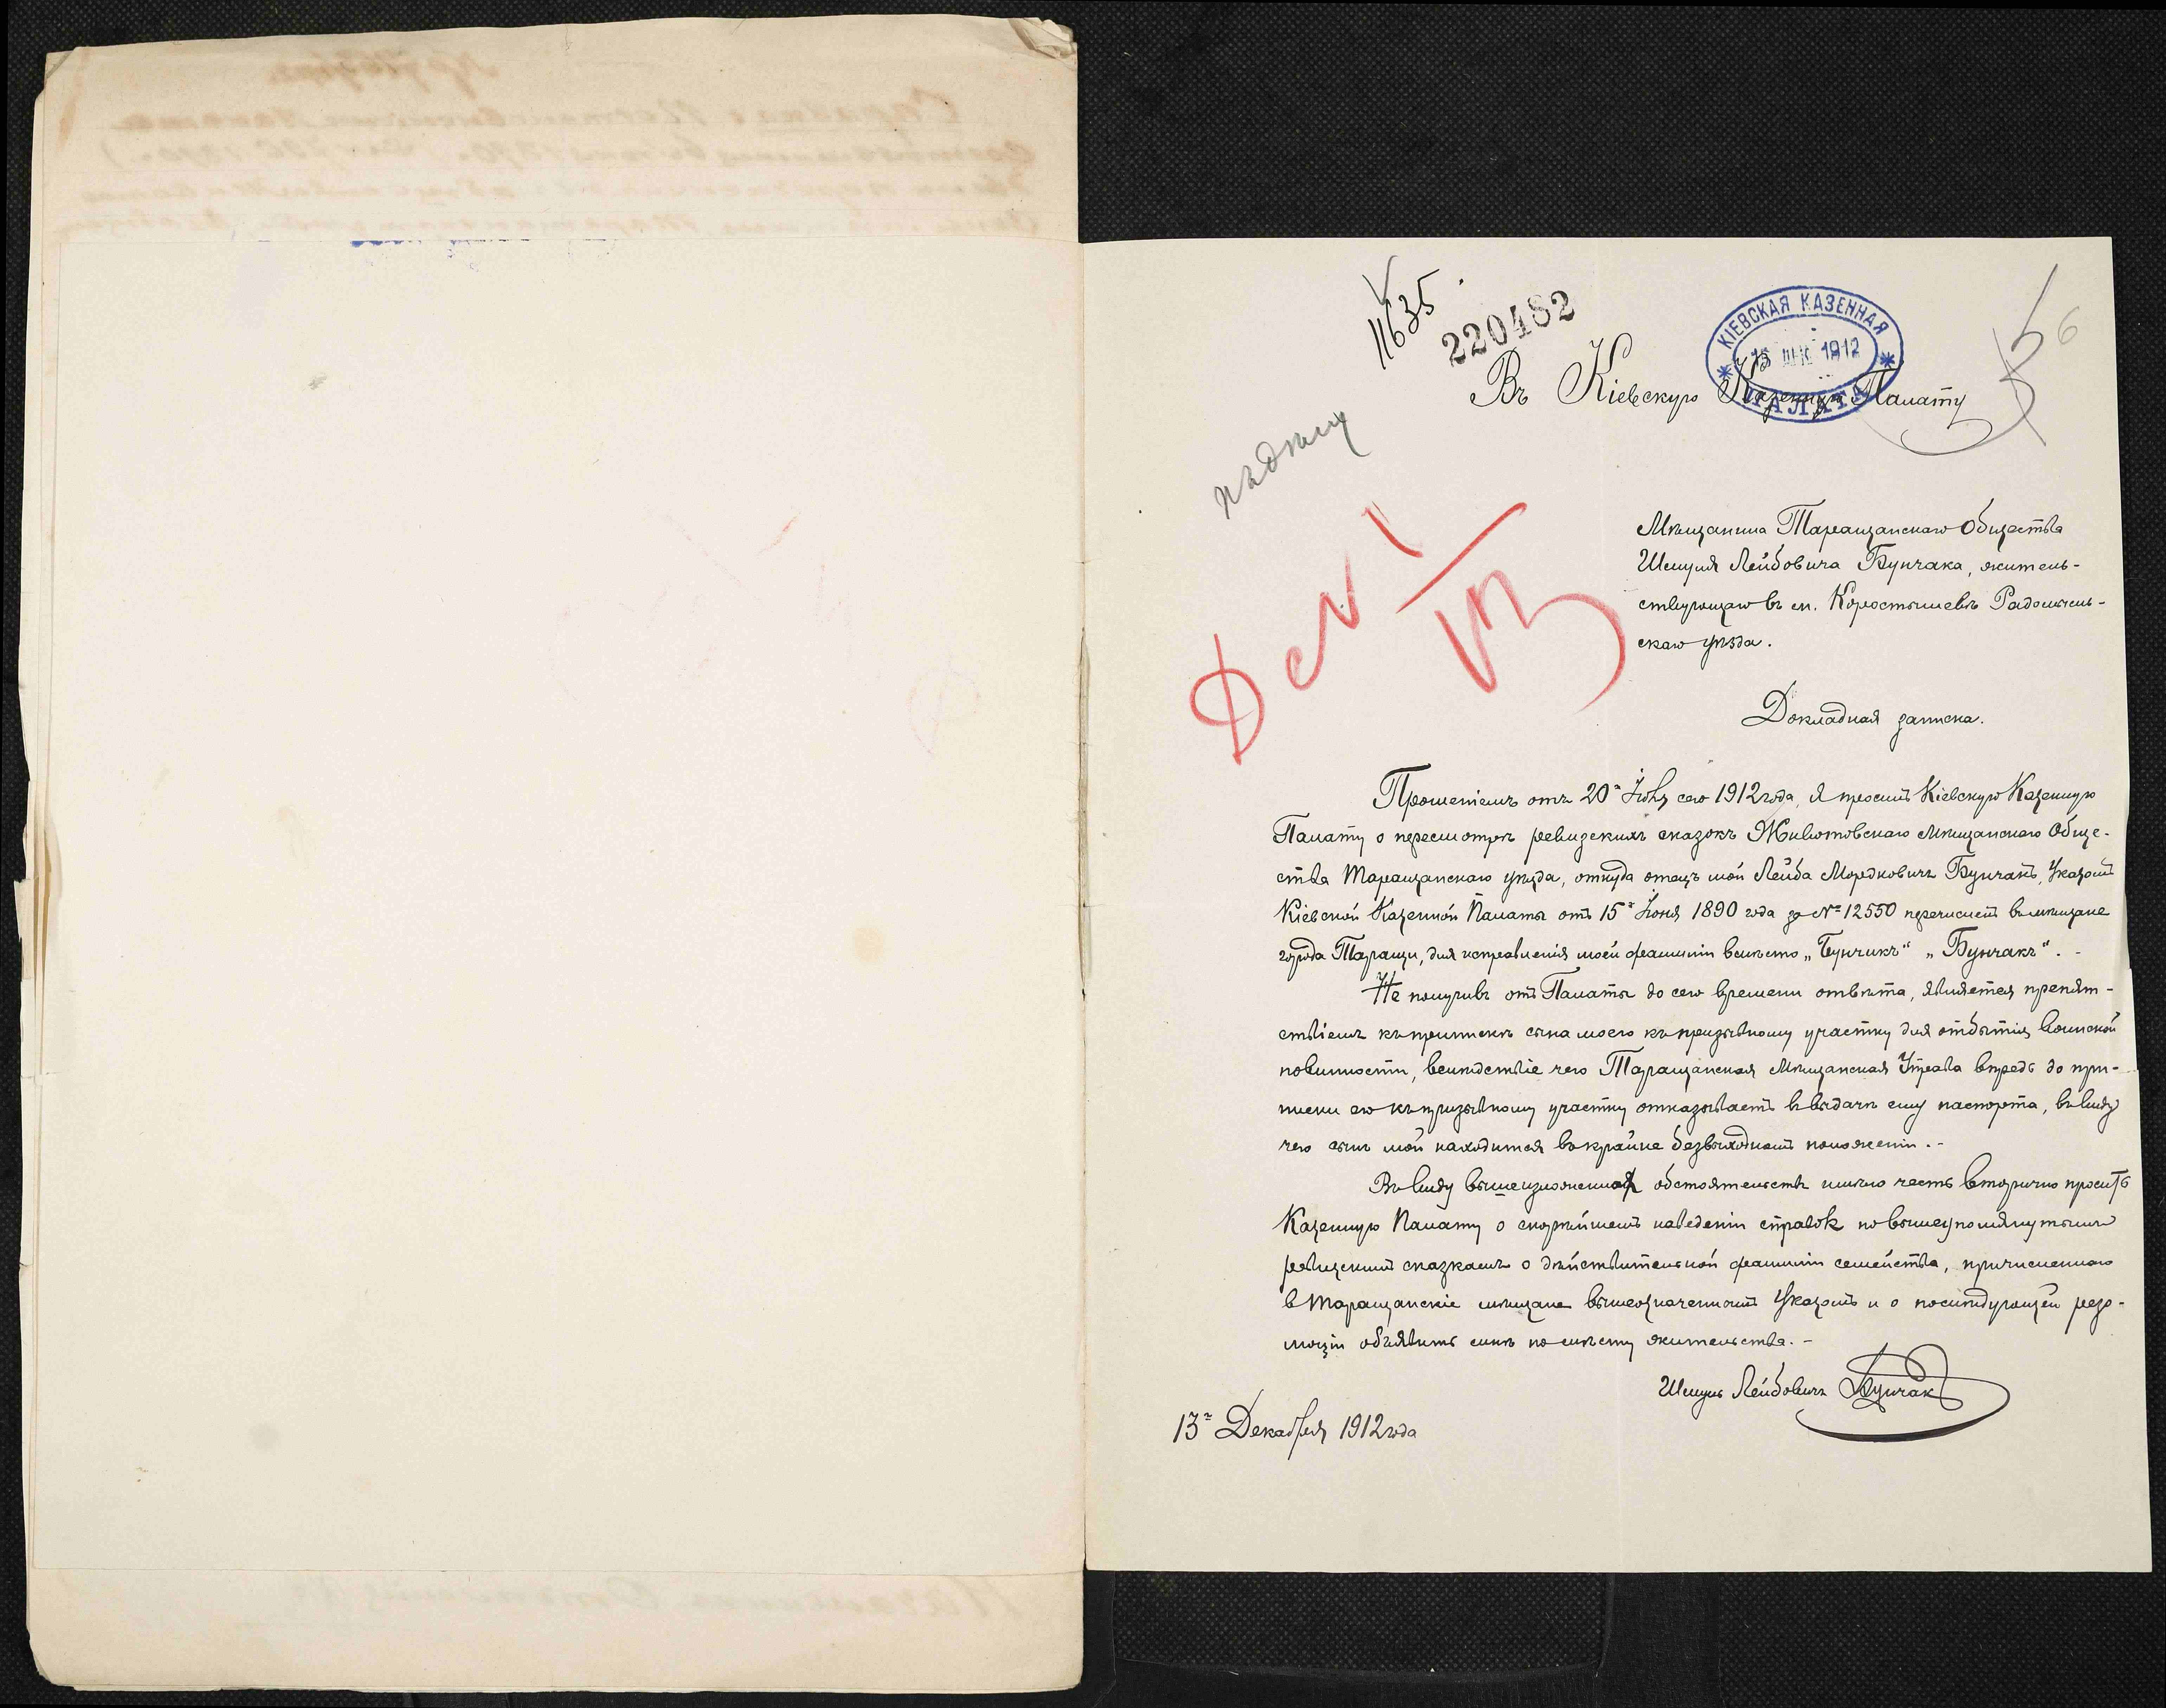 11635
220482
КІЕВСКАЯ КАЗЕННАЯ
15 ДЕК 1912
ПАЛАТА
6
Въ Кіевскую Казенную Палату
Мѣщанина Таращанскаго Общества
Шмуля Лейбовича Бунчака, житель-
ствующаго въ м. Коростышевѣ Радомысль-
скаго уѣзда.
Докладная записка.
Прошеніемъ отъ 20г сего 1912 года, я просилъ Кіевскую Казенную
Палату о пересмотрѣ ревизскихъ сказокъ Животовскаго Мѣщанскаго Обще-
ства Таращанскаго уѣзда, откуда отецъ мой Лейба Мордковичъ Бунчакъ, Указомъ
Кіевской Казенной Палаты отъ 15г Іюня 1890 года за № 12550 перечисленъ въ мѣщане
города Таращи, для исправленія моей фамиліи вмѣсто „Бунчикъ" „Бунчакъ". -
Не получивъ отъ Палаты до сего времени отвѣта, является препят-
ствіемъ къ припискѣ сына моего къ призывному участку для отбытія воинской
повинности, вслѣдствіе чего Таращанская Мѣщанская Управа впредь до при-
писки его къ призывному участку отказываетъ въ выдачѣ ему паспорта, въ виду
чего сынъ мой находится въ крайне безвыходномъ положеніи. -
Въ виду вышеизложенныхъ обстоятельствъ имѣю честь вторично просить
Казенную Палату о скорѣйшемъ наведеніи справокъ по вышеупомянутымъ
ревизскимъ сказкамъ о дѣйствительной фамиліи семейства, причисленнаго
въ Таращанскіе мѣщане вышеозначеннымъ Указомъ и о послѣдующей резо-
люціи объявить мнѣ по мѣсту жительства. -
Шмуль Лейбовичъ Бунчакъ
13г Декабря 1912 года